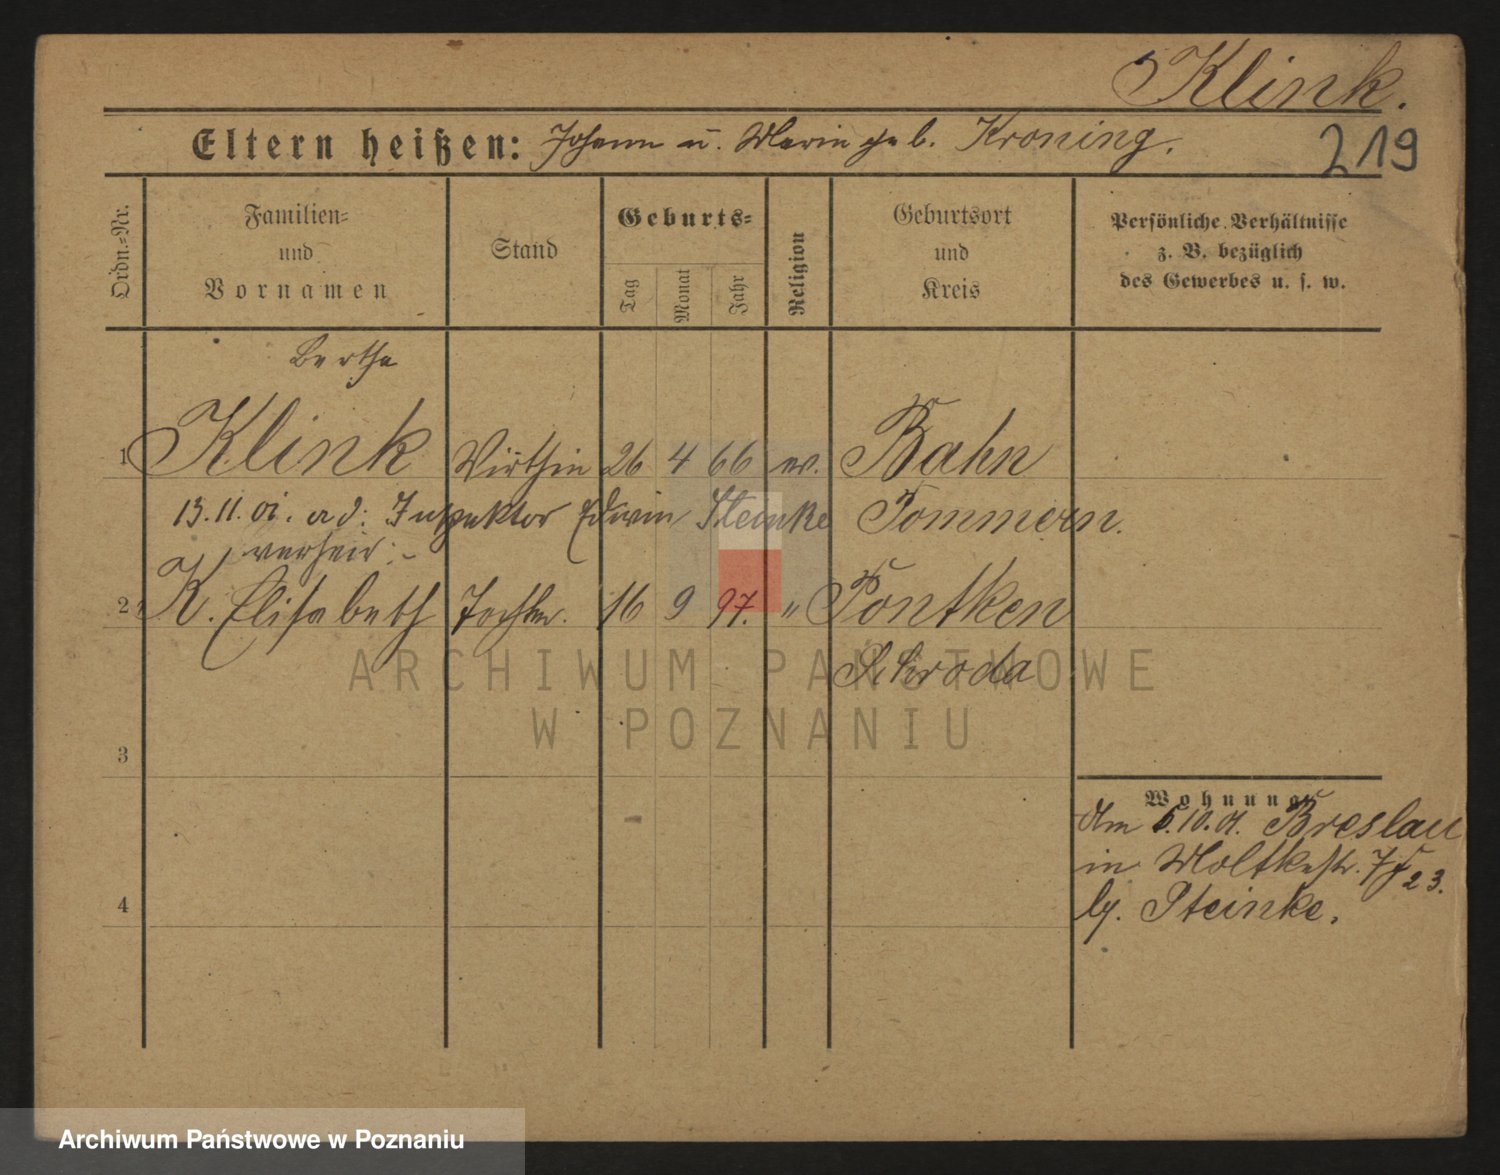 Klink.
219
Eltern heißen: Johann u. Marie geb. Kroning.
Ordn.=Nr.
Familien=
und
Vornamen
Stand
Geburts=
Tag
Monat
Jahr
Religion
Geburtsort
und
Kreis
Persönliche Verhältnisse
z. B. bezüglich
des Gewerbes u. s. w.
Bertha
1 Klink Wirthin 26 4 66 ev. Bahn
13.11.01. a d: Inspektor Edwin Steinke Pommern.
verheir:
2 K. Elisabeth Tochter. 16 9 97. " Pontken
Schroda
3
Wohnung
Am 5.10.01. Breslau
in Moltkestr. 23.
by. Steinke.
4
ARCHIWUM PAŃSTWOWE
W POZNANIU
Archiwum Państwowe w Poznaniu